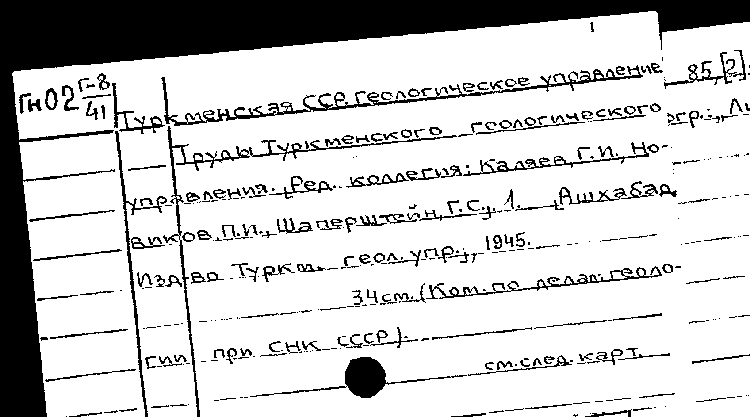 1
Гн02 Г-8/41
Туркменская ССР. Геологическое управление
Труды Туркменского геологического
управления. Ред. коллегия: Каляев, Г.И., Но-
виков, П.И., Шаперштейн, Г.С., 1. Ашхабад,
Изд-во Туркм. геол. упр., 1945.
34см. (Ком. по делам геоло-
гии при СНК СССР).
см. след. карт.
85, [2]